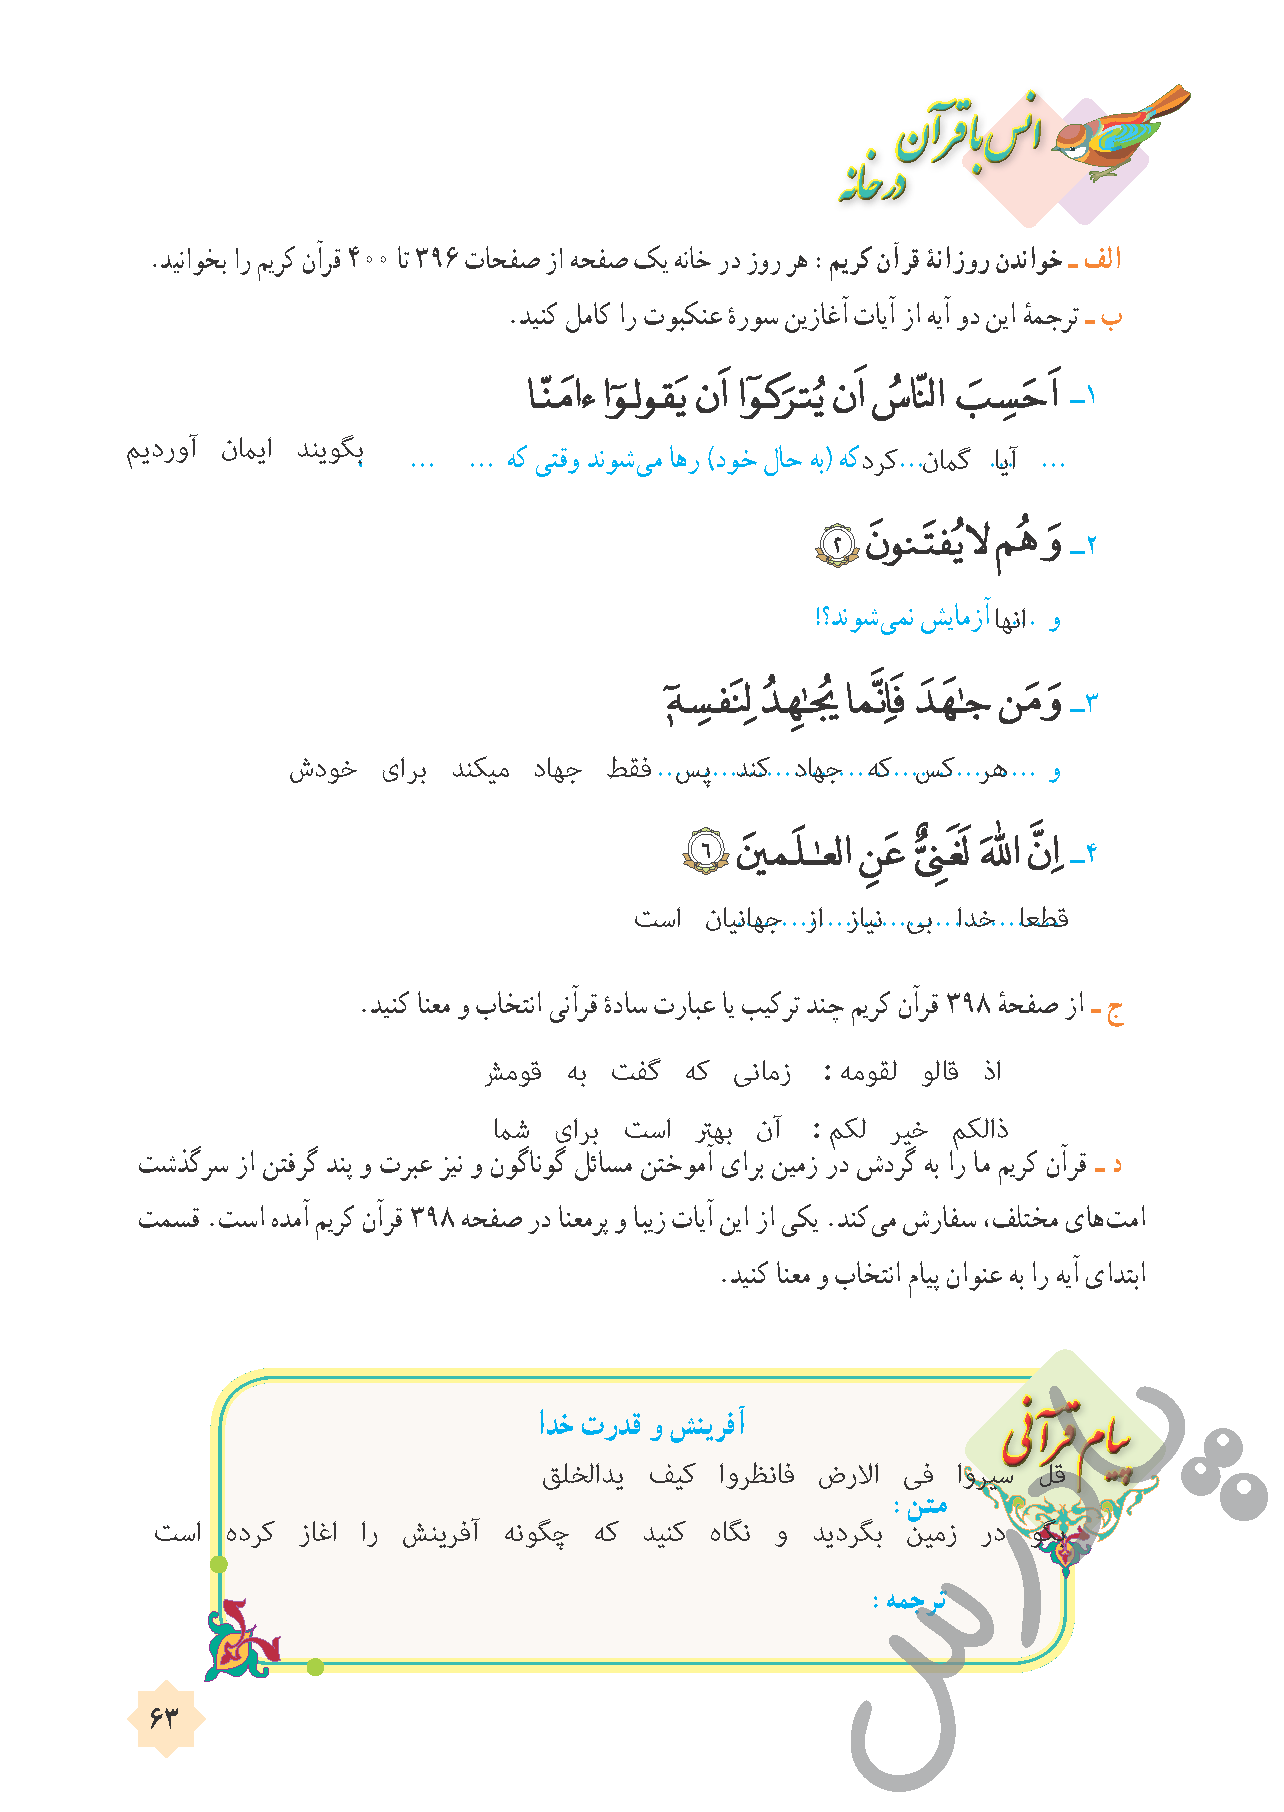 انس با قرآن
در خانه
الف ـ خواندن روزانهٔ قرآن کریم : هر روز در خانه یک صفحه از صفحات ۳۹۶ تا ۴۰۰ قرآن کریم را بخوانید.
ب ـ ترجمهٔ این دو آیه از آیات آغازین سورهٔ عنکبوت را کامل کنید.
۱ـ اَحَسِبَ النّاسُ اَن يُترَكوٓا اَن يَقولوٓا ءامَنّا
... آیا گمان ... کرد که (به حال خود) رها می‌شوند وقتی که ... ... بگویند ایمان آوردیم
۲ـ وَ هُم لا يُفتَنونَ ۲
و ... انها آزمایش نمی‌شوند؟!
۳ـ وَ مَن جٰهَدَ فَاِنَّما يُجٰهِدُ لِنَفسِهٖٓ
و ... هر کس که جهاد کند پس فقط جهاد میکند برای خودش
۴ـ اِنَّ اللّٰهَ لَغَنِیٌّ عَنِ العٰلَمينَ ٦
قطعا خدا بی نیاز از جهانیان است
ج ـ از صفحهٔ ۳۹۸ قرآن کریم چند ترکیب یا عبارت سادهٔ قرآنی انتخاب و معنا کنید.
اذ قالو لقومه : زمانی که گفت به قومش
ذالکم خیر لکم : آن بهتر است برای شما
د ـ قرآن کریم ما را به گردش در زمین برای آموختن مسائل گوناگون و نیز عبرت و پند گرفتن از سرگذشت
امت‌های مختلف، سفارش می‌کند. یکی از این آیات زیبا و پرمعنا در صفحه ۳۹۸ قرآن کریم آمده است. قسمت
ابتدای آیه را به عنوان پیام انتخاب و معنا کنید.
پیام قرآنی
آفرینش و قدرت خدا
قل سیروا فی الارض فانظروا کیف یدالخلق
متن :
بگو در زمین بگردید و نگاه کنید که چگونه آفرینش را اغاز کرده است
ترجمه :
پادرس
۶۳